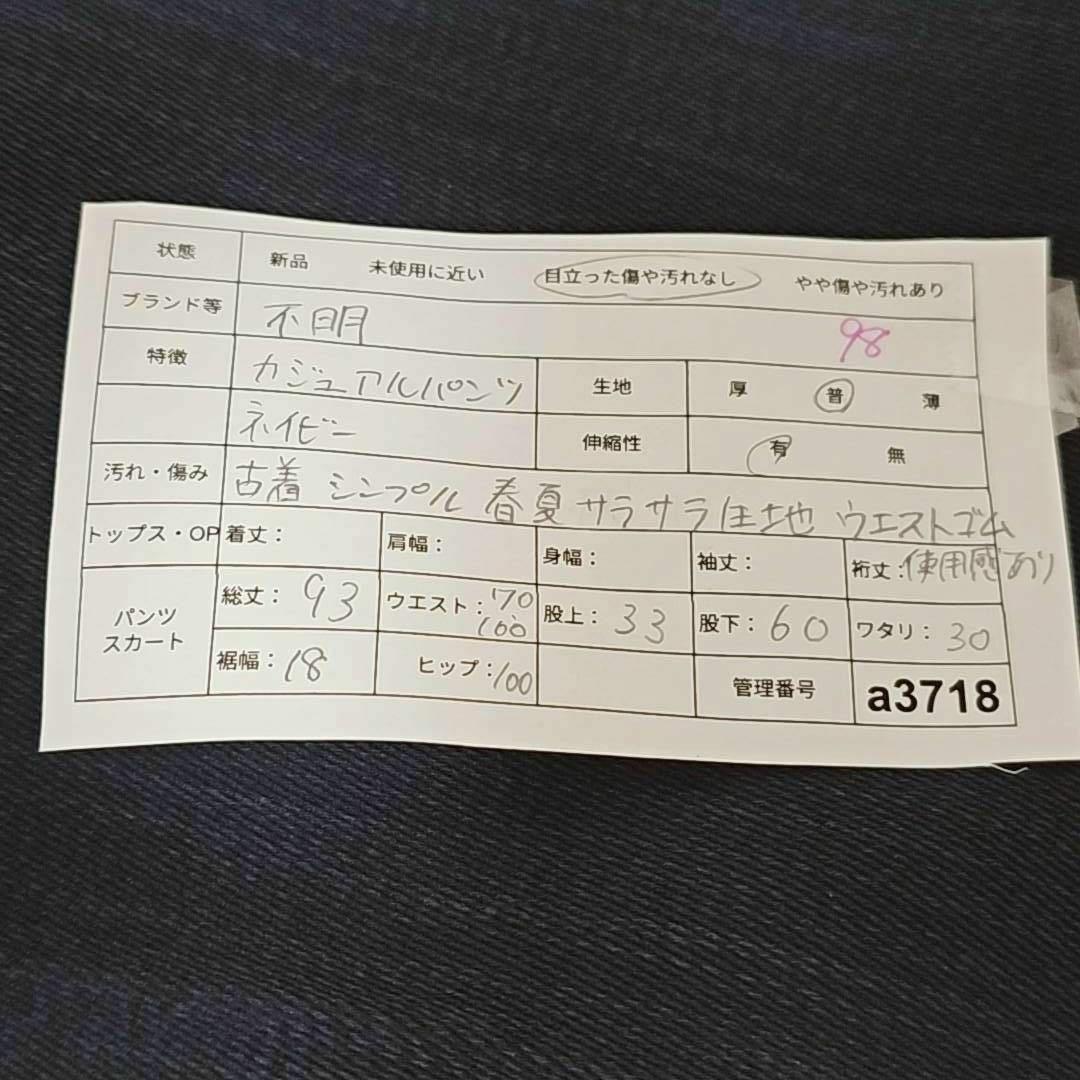 状態 新品 未使用に近い 目立った傷や汚れなし やや傷や汚れあり
ブランド等 不明 98
特徴 カジュアルパンツ 生地 厚 普 薄
ネイビー 伸縮性 有 無
汚れ・傷み 古着 シンプル 春夏 サラサラ生地 ウエストゴム
使用感あり
トップス・OP 着丈: 肩幅: 身幅: 袖丈: 裄丈:
パンツ スカート 総丈: 93 ウエスト: 70 100 股上: 33 股下: 60 ワタリ: 30
裾幅: 18 ヒップ: 100 管理番号 a3718